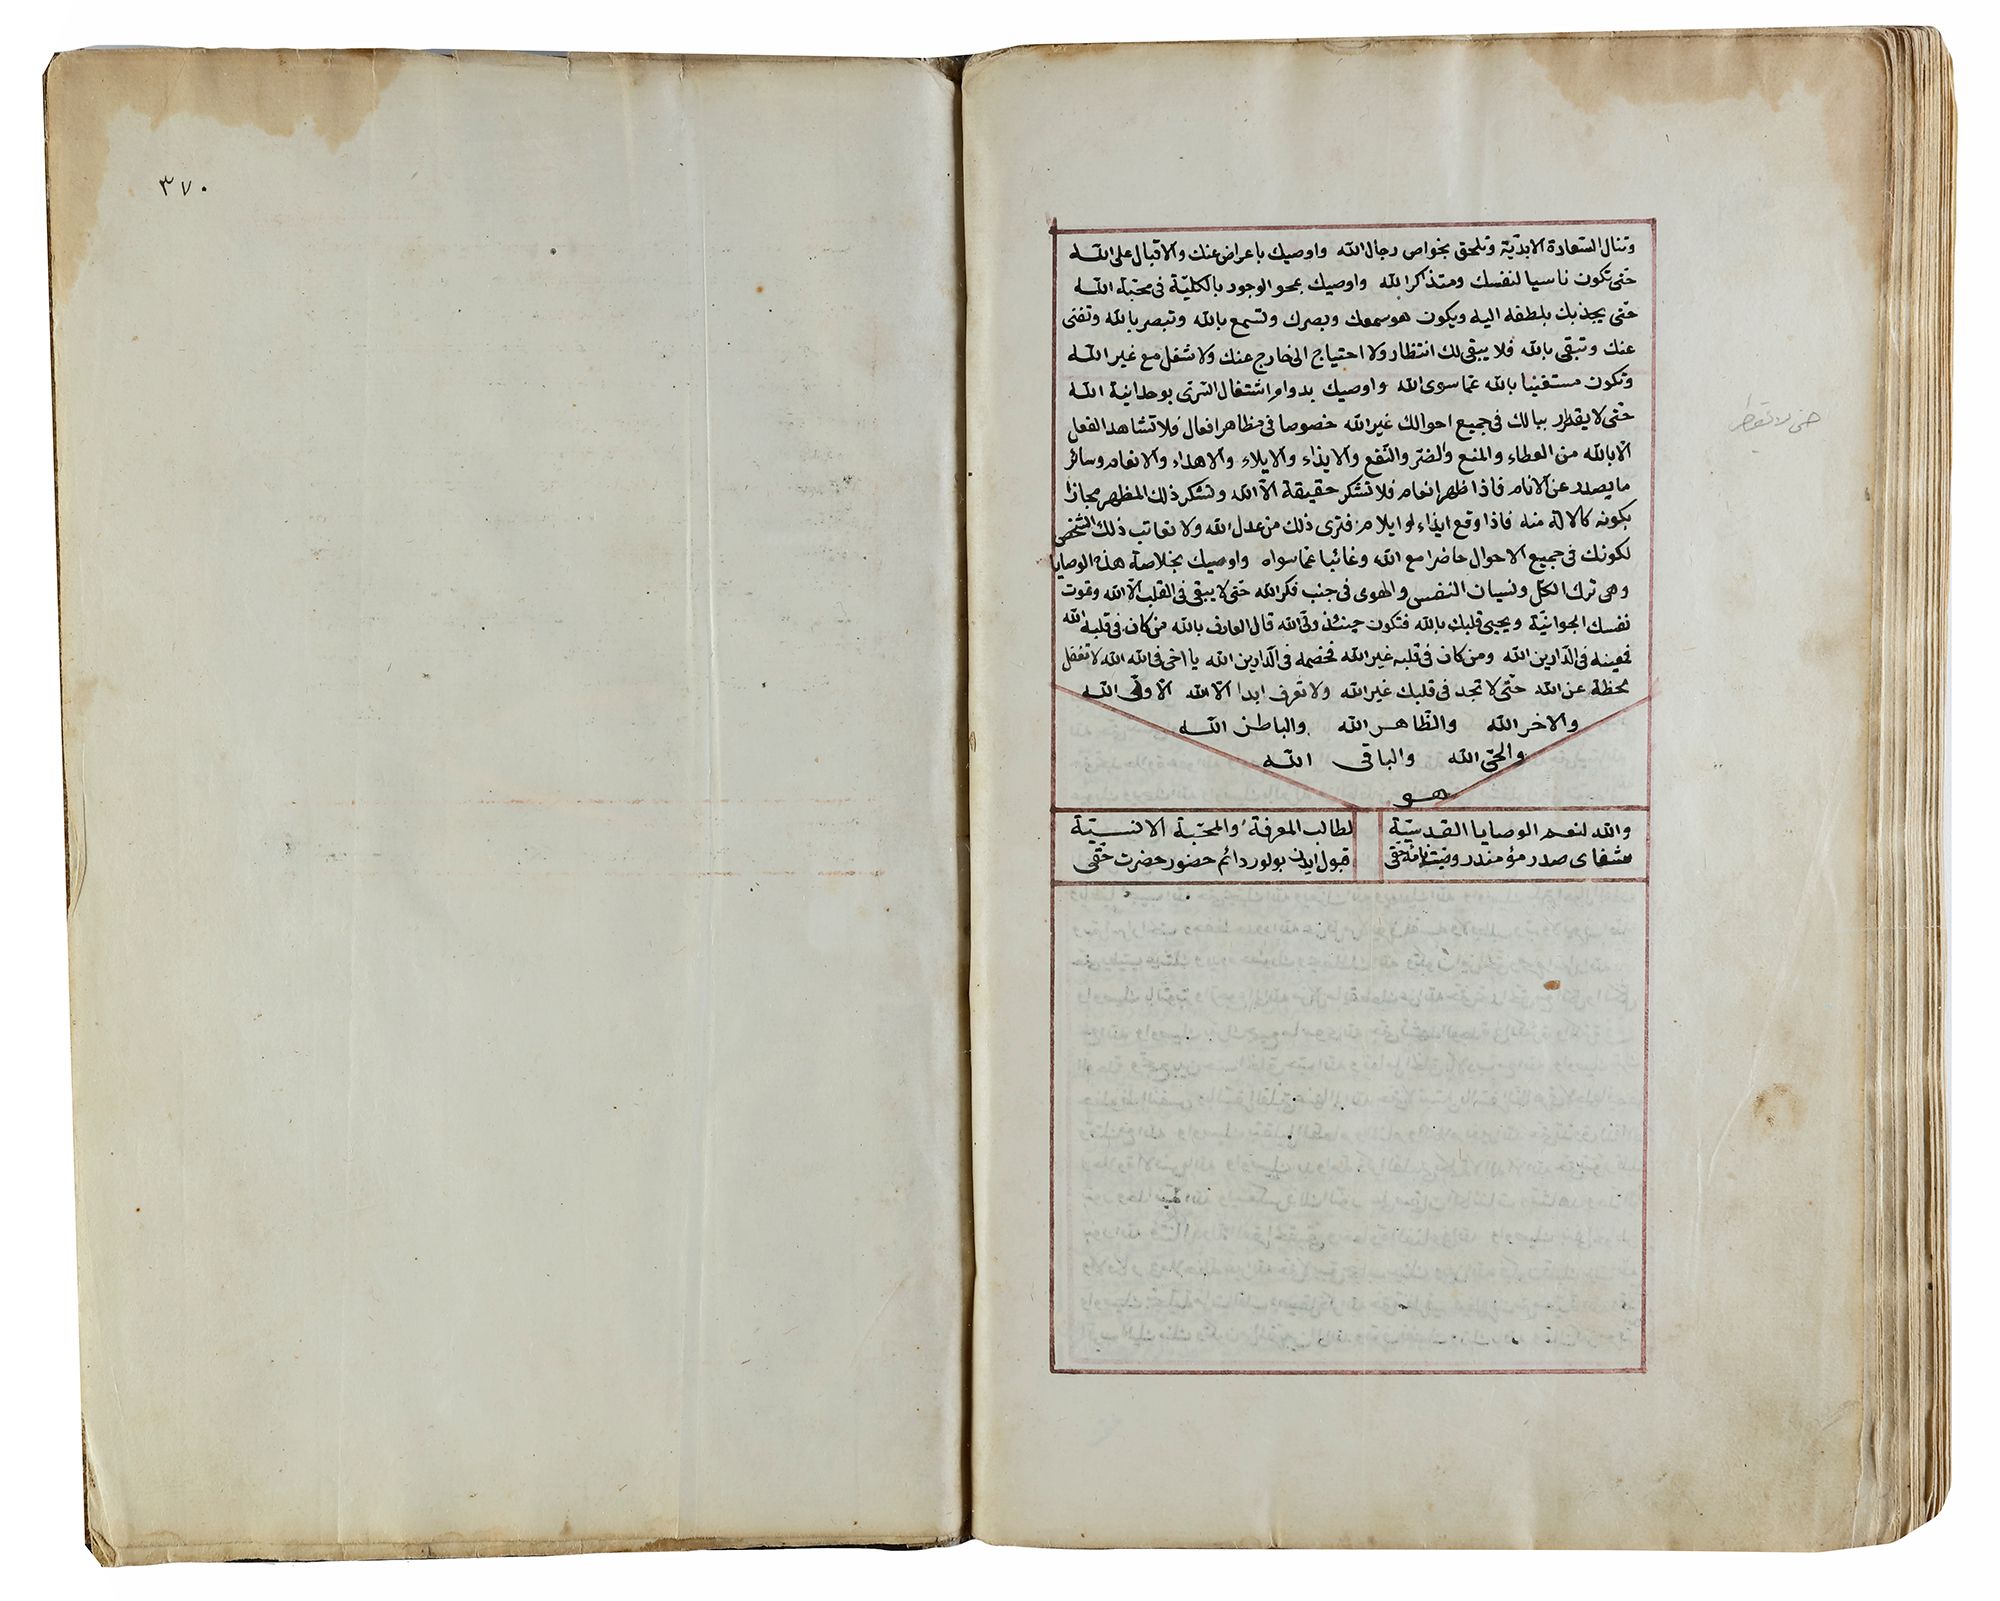 وتنال السّعادة الابديّة وتلحق بخواص رجال الله واوصيك باعراض عنك والاقبال على الله
حتّى تكون ناسيا لنفسك ومتذاكر الله واوصيك بمحو الوجود بالكليّة فى محبّة الله
حتّى يجذبك بلطفه اليه ويكون هو سمعك وبصرك وتسمع بالله وتبصر بالله وتفنى
عنك وتبقى بالله فلا يبقى لك انتظار ولا احتياج الى خارج عنك ولا شغل مع غير الله
وتكون مستغنيا بالله عمّا سوى الله واوصيك بدوام اشتغال السّرّى بوحدانية الله
حتّى لا يقطر ببالك فى جميع احوالك غير الله خصوصا فى مظاهر افعال فلا تشاهد الفعل
الّا بالله من العطاء والمنع والضّر والنّفع والايذاء والايلاء والاهداء والانعام وسائر
ما يصدر عن الانام فاذا ظهر انعام فلا تشكر حقيقة الّا الله وتشكر ذلك المظهر مجازا
بكونه كالالة منه فاذا وقع ايذاء او ايلام فترى ذلك من عدل الله ولا تعاتب ذلك الشّخص
لكونك فى جميع الاحوال حاضرا مع الله وغائبا عمّا سواه واوصيك بخلاصة هذه الوصايا
وهى ترك الكلّ ونسيان النفس والهوى فى جنب فكر الله حتّى لا يبقى فى القلب الّا الله وتموت
نفسك الحيوانيّة ويحيى قلبك بالله فتكون حينئذ ولىّ الله قال العارف بالله من كان فى قلبه الله
فمعينه فى الدّارين الله ومن كان فى قلبه غير الله فخصمه فى الدّارين الله يا اخى فى الله الله لا تغفل
لحظة عن الله حتّى لا تجد فى قلبك غير الله ولا تعرف ابدا الّا الله الاوّل الله
والاخر الله والظّاهر الله والباطن الله
والحىّ الله والباقى الله
هو
والله لنعم الوصايا القدسيّة لطالب المعرفة والمحبّة الانسيّة
شفاى صدر مؤمندر وصيّت نامۀ حقّى قبول ايدن بولور دائم حضور حضرت حقّى
٣٧٠